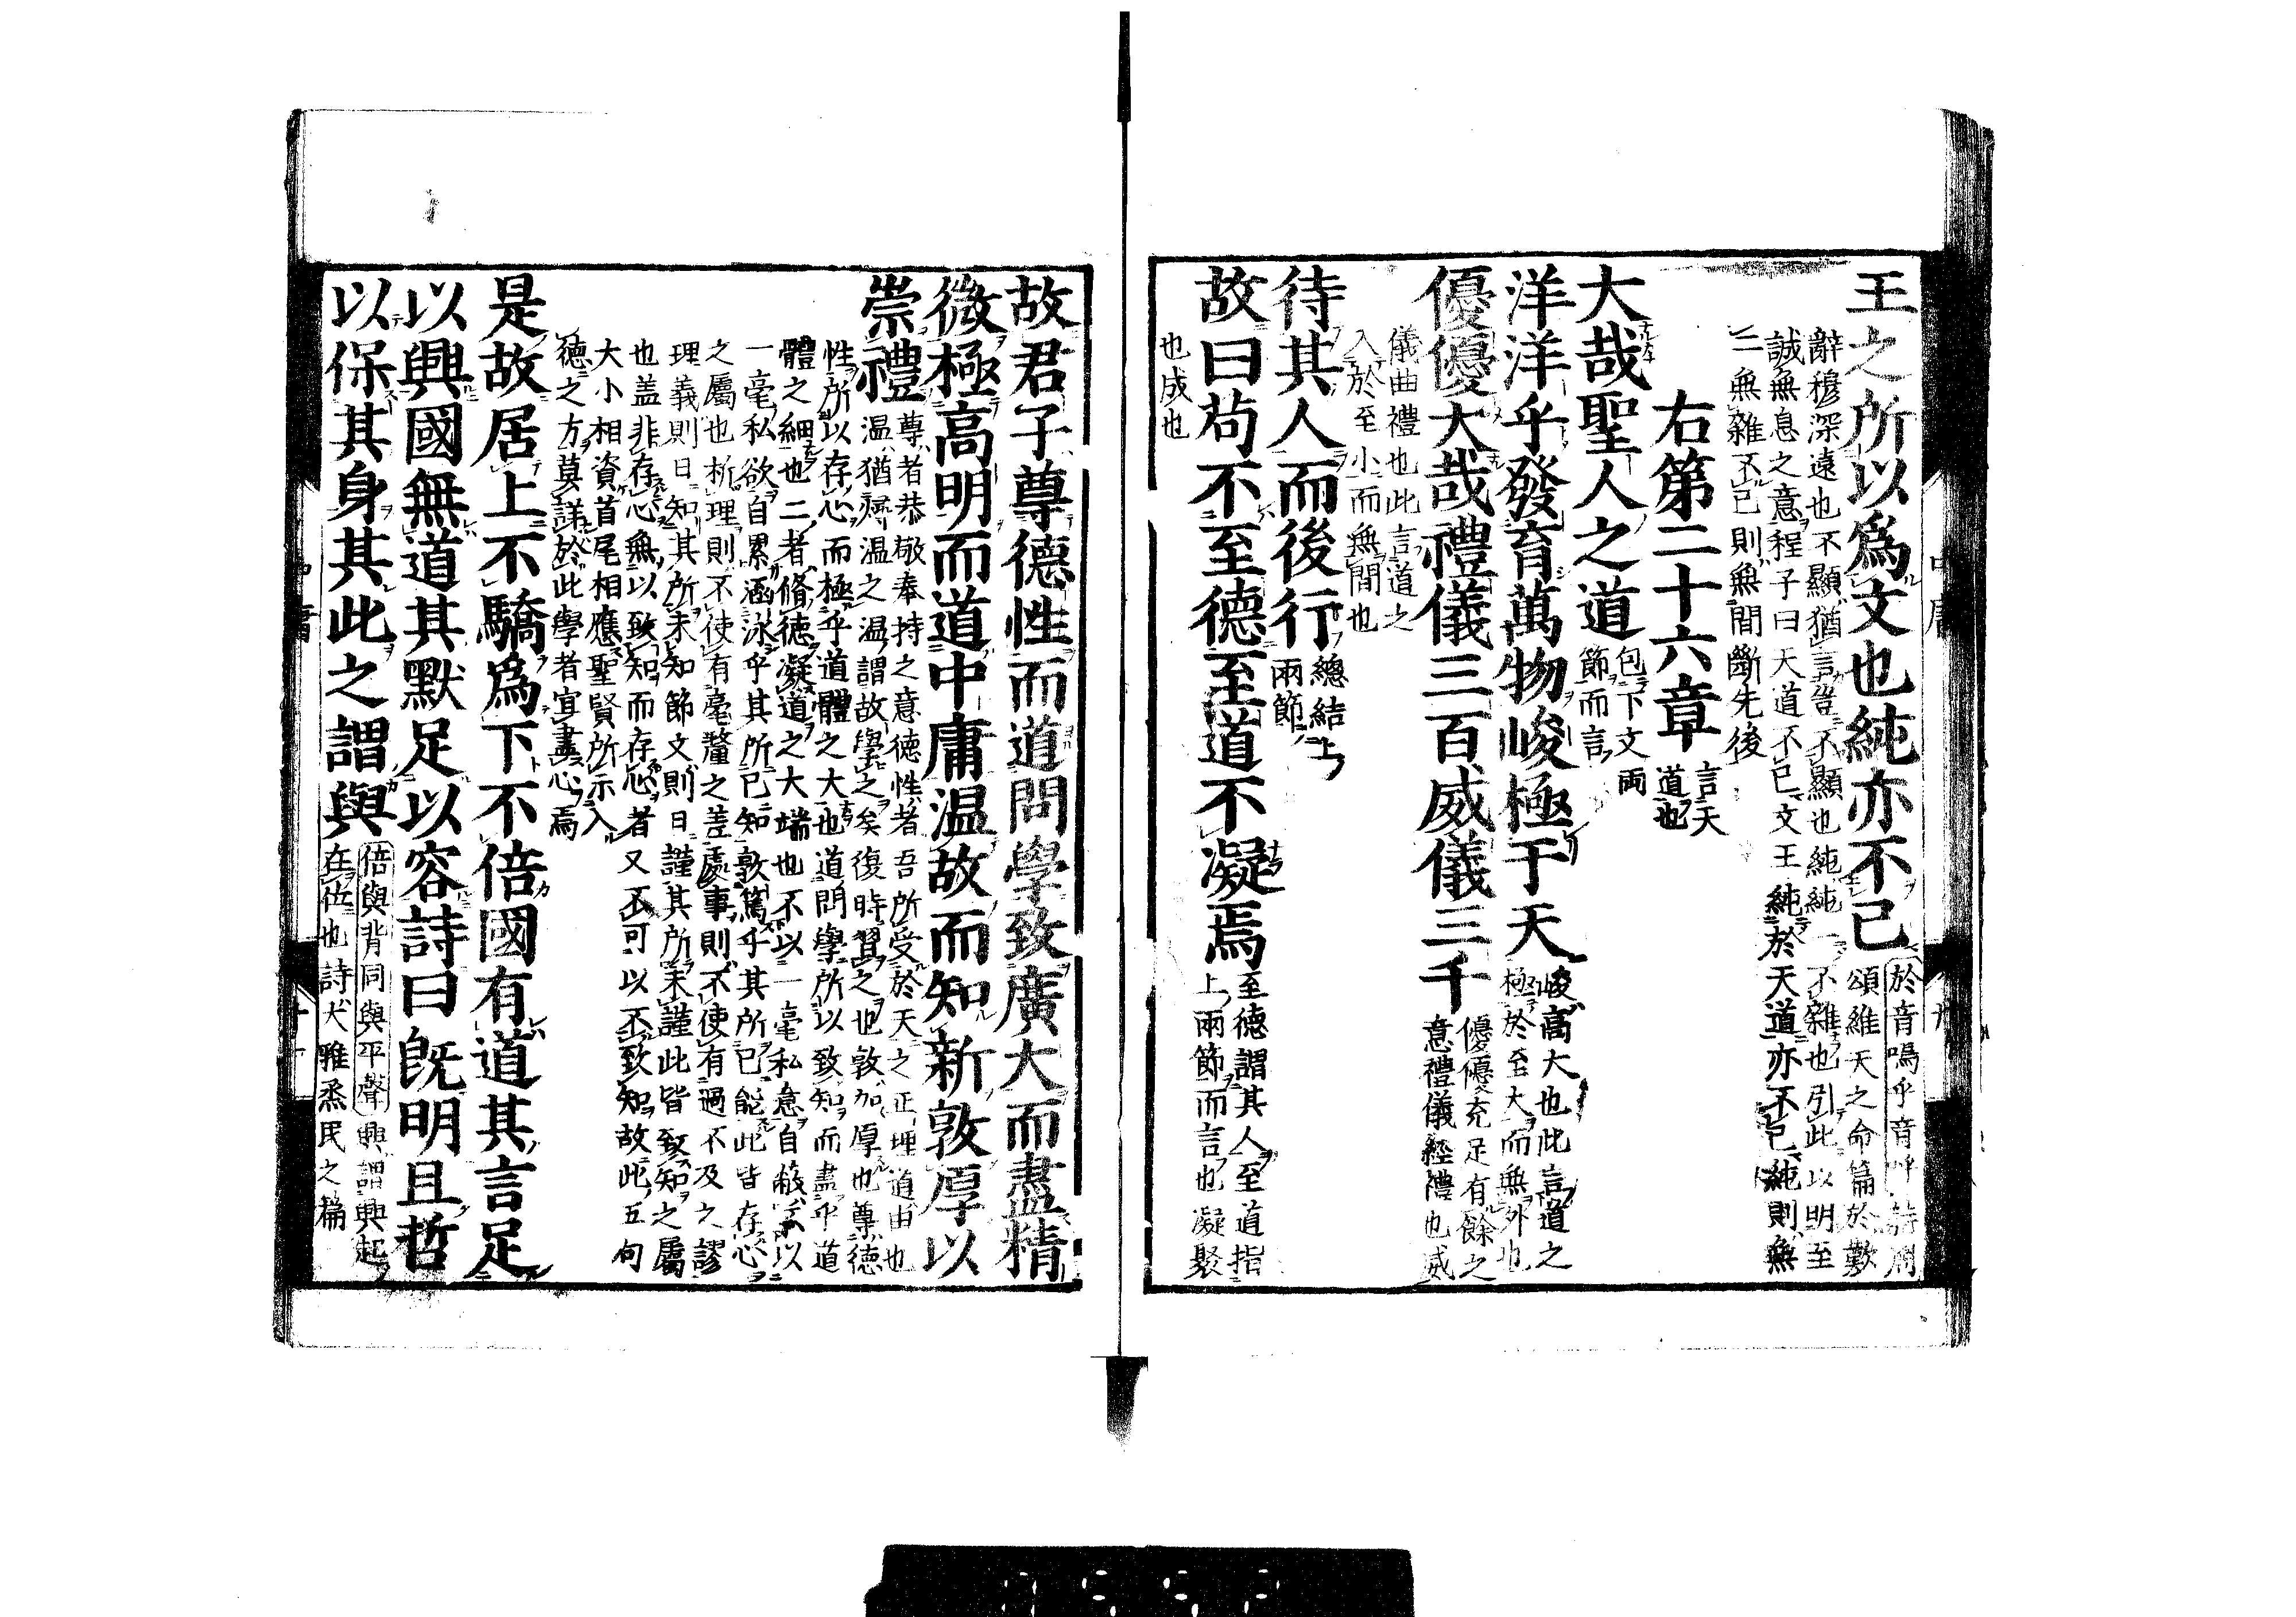 王之所以爲文也純亦不已
於音嗚乎音呼詩周
頌維天之命篇於歎
辭穆深遠也不顯猶言豈不顯也純純一不雜也引此以明至
誠無息之意程子曰天道不已文王純於天道亦不已純則無
二無雜不已則無間斷先後
右第二十六章
言天
道也
大哉聖人之道
包下文兩
節而言
洋洋乎發育萬物峻極于天
峻高大也此言道之
極於至大而無外也
優優大哉禮儀三百威儀三千
優優充足有餘之
意禮儀經禮也威
儀曲禮也此言道之
入於至小而無間也
待其人而後行
總結上
兩節
故曰苟不至德至道不凝焉
至德謂其人至道指
上兩節而言也凝聚
也成也
故君子尊德性而道問學致廣大而盡精
微極高明而道中庸温故而知新敦厚以
崇禮
尊者恭敬奉持之意德性者吾所受於天之正理道由也
温猶燖温之温謂故學之矣復時習之也敦加厚也尊德
性所以存心而極乎道體之大也道問學所以致知而盡乎道
體之細也二者脩德凝道之大端也不以一毫私意自蔽不以
一毫私欲自累涵泳乎其所已知敦篤乎其所已能此皆存心
之屬也析理則不使有毫釐之差處事則不使有過不及之謬
理義則日知其所未知節文則日謹其所未謹此皆致知之屬
也盖非存心無以致知而存心者又不可以不致知故此五句
大小相資首尾相應聖賢所示入
德之方莫詳於此學者宜盡心焉
是故居上不驕爲下不倍國有道其言足
以興國無道其默足以容詩曰旣明且哲
以保其身其此之謂與
倍與背同與平聲興謂興起
在位也詩大雅烝民之篇